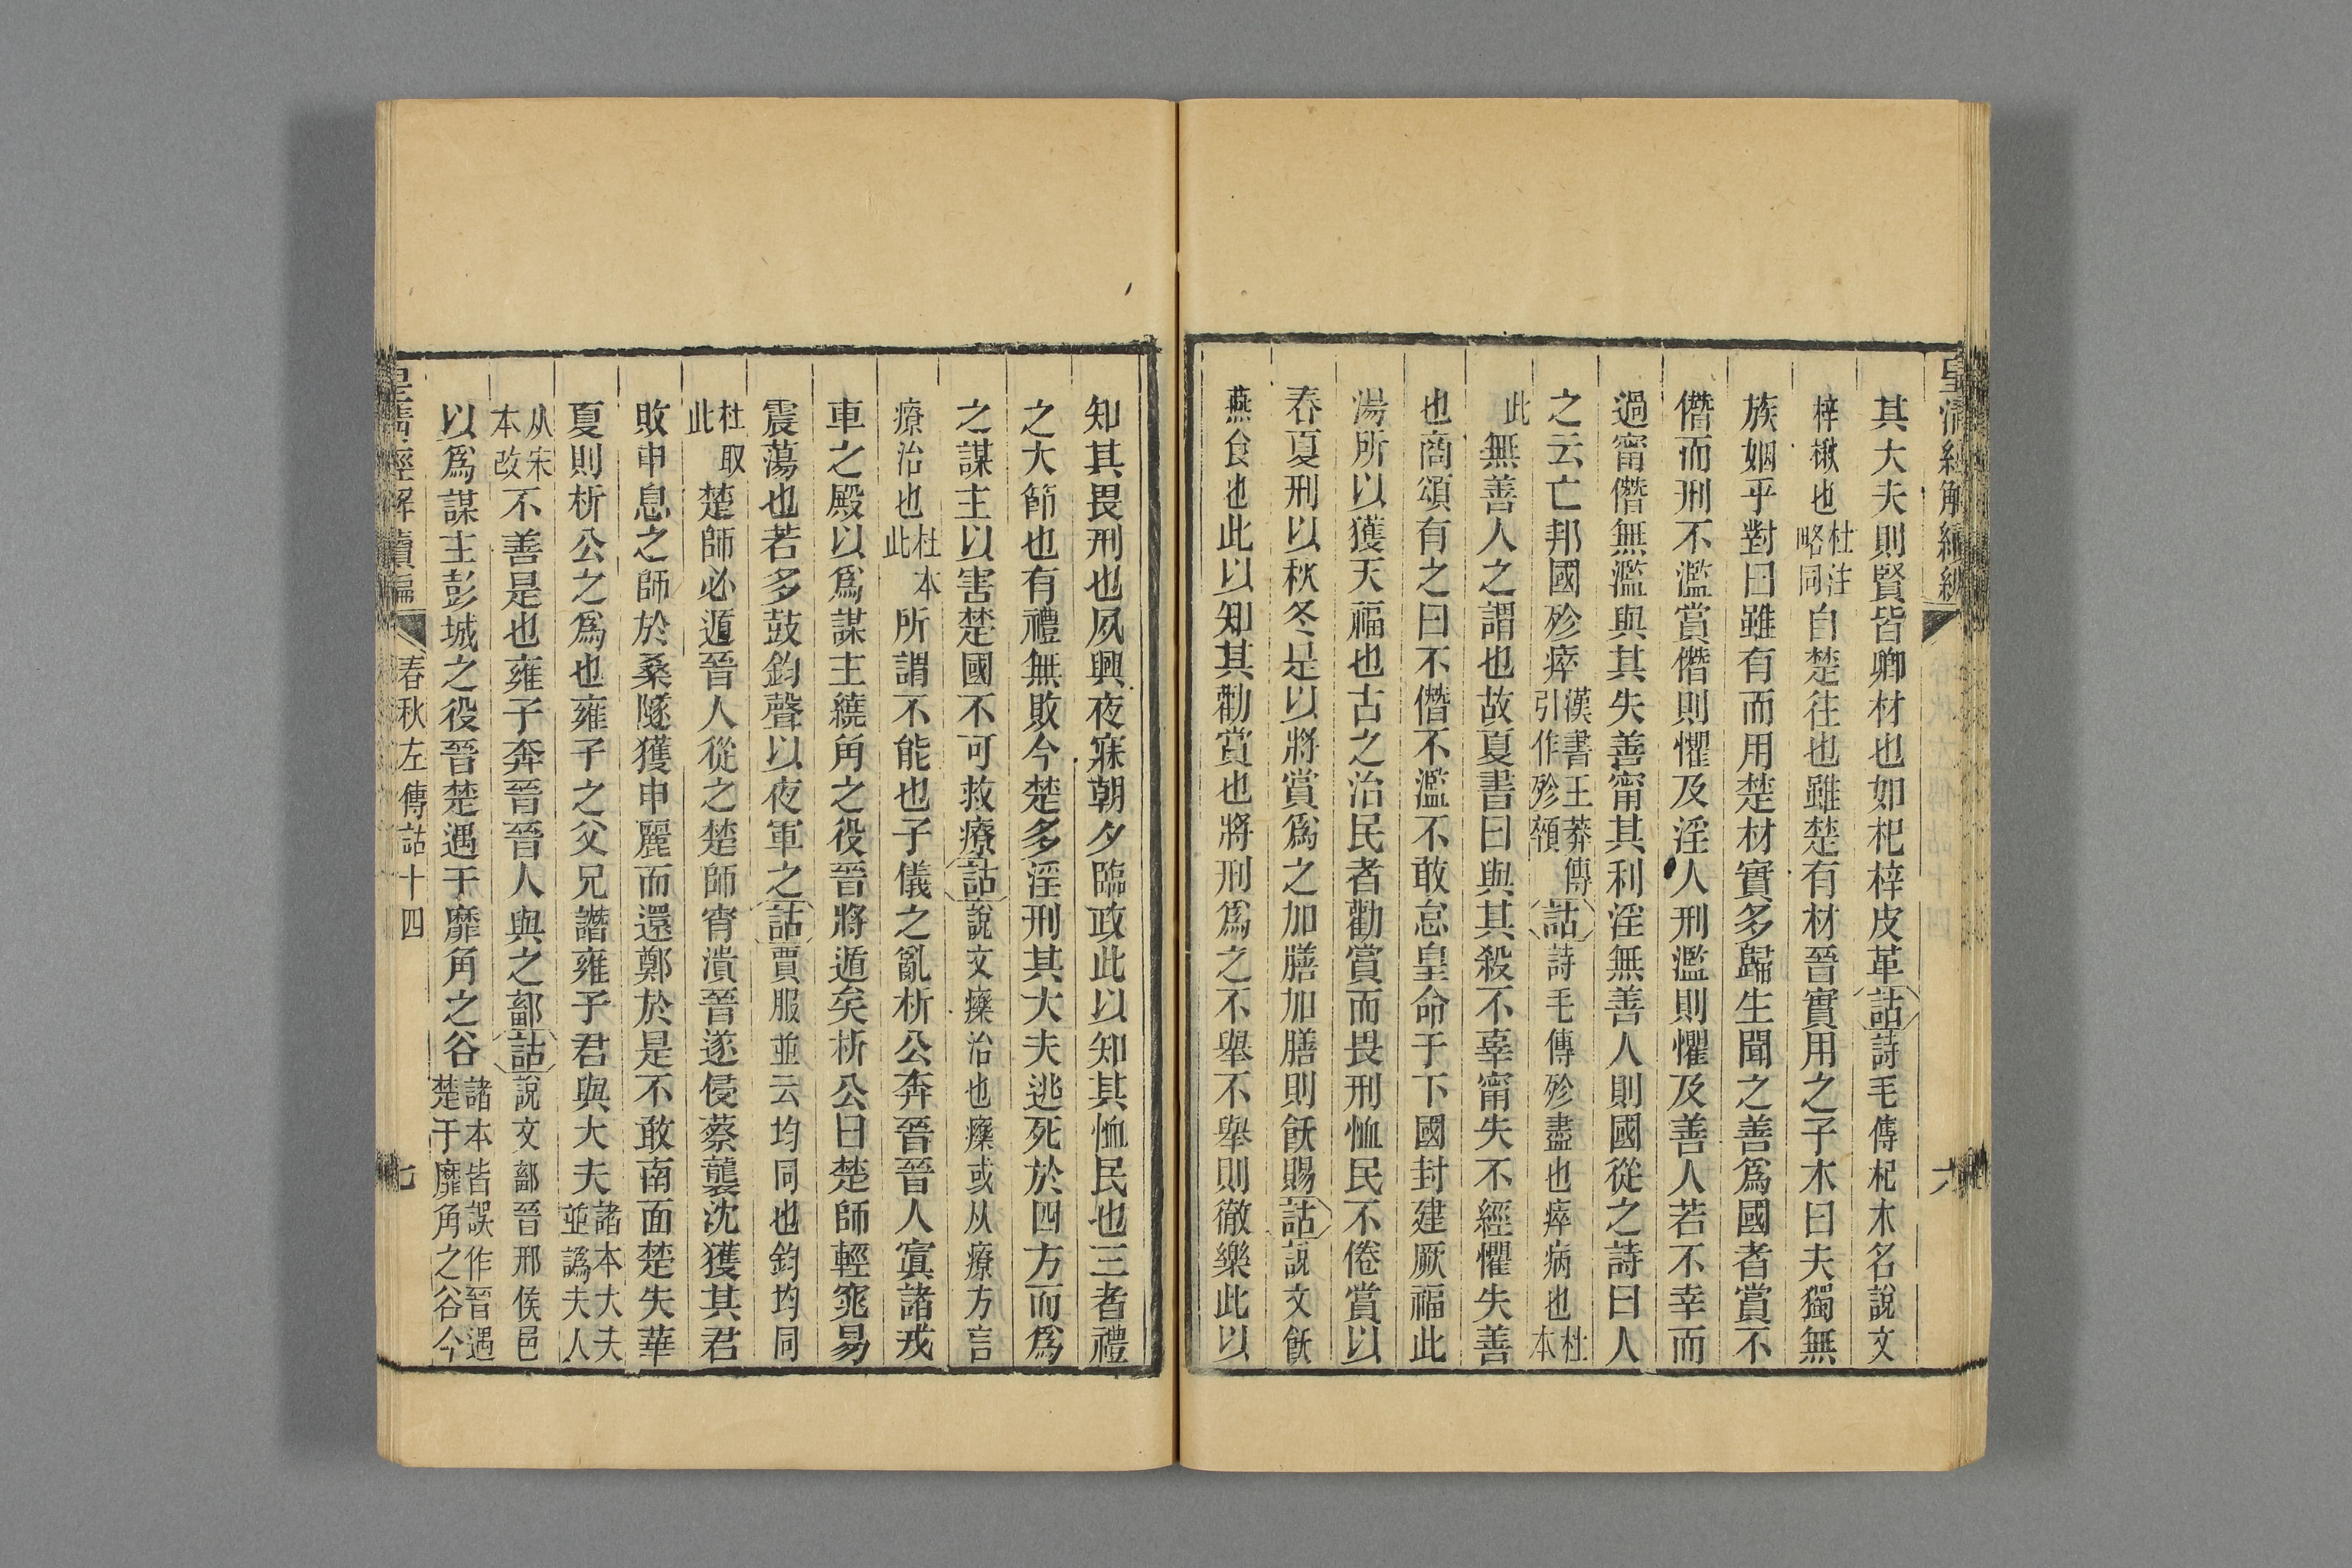 其大夫則賢皆卿材也如杞梓皮革詁詩毛傳杞木名說文
梓楸也杜注略同自楚往也雖楚有材晉實用之子木曰夫獨無
族姻乎對曰雖有而用楚材實多歸生聞之善爲國者賞不
僭而刑不濫賞僭則懼及淫人刑濫則懼及善人若不幸而
過甯僭無濫與其失善甯其利淫無善人則國從之詩曰人
之云亡邦國殄瘁漢書王莽傳引作殄顇詁詩毛傳殄盡也瘁病也杜本
此無善人之謂也故夏書曰與其殺不辜甯失不經懼失善
也商頌有之曰不僭不濫不敢怠皇命于下國封建厥福此
湯所以獲天福也古之治民者勸賞而畏刑恤民不倦賞以
春夏刑以秋冬是以將賞爲之加膳加膳則飫賜詁說文飫
燕食也此以知其勸賞也將刑爲之不舉不舉則徹樂此以
六
知其畏刑也夙興夜寐朝夕臨政此以知其恤民也三者禮
之大節也有禮無敗今楚多淫刑其大夫逃死於四方而爲
之謀主以害楚國不可救療詁說文㿋治也㿋或从療方言
療治也杜本此所謂不能也子儀之亂析公奔晉晉人寘諸戎
車之殿以爲謀主繞角之役晉將遁矣析公曰楚師輕窕易
震蕩也若多鼓鈞聲以夜軍之詁賈服並云均同也鈞均同
杜取此楚師必遁晉人從之楚師宵潰晉遂侵蔡襲沈獲其君
敗申息之師於桑隧獲申麗而還鄭於是不敢南面楚失華
夏則析公之爲也雍子之父兄譖雍子君與大夫諸本大夫並譌夫人
从宋本改不善是也雍子奔晉晉人與之鄐詁說文鄐晉邢侯邑
以爲謀主彭城之役晉楚遇于靡角之谷諸本皆誤作晉遇楚于靡角之谷今
皇清經解續編
春秋左傳詁十四
七